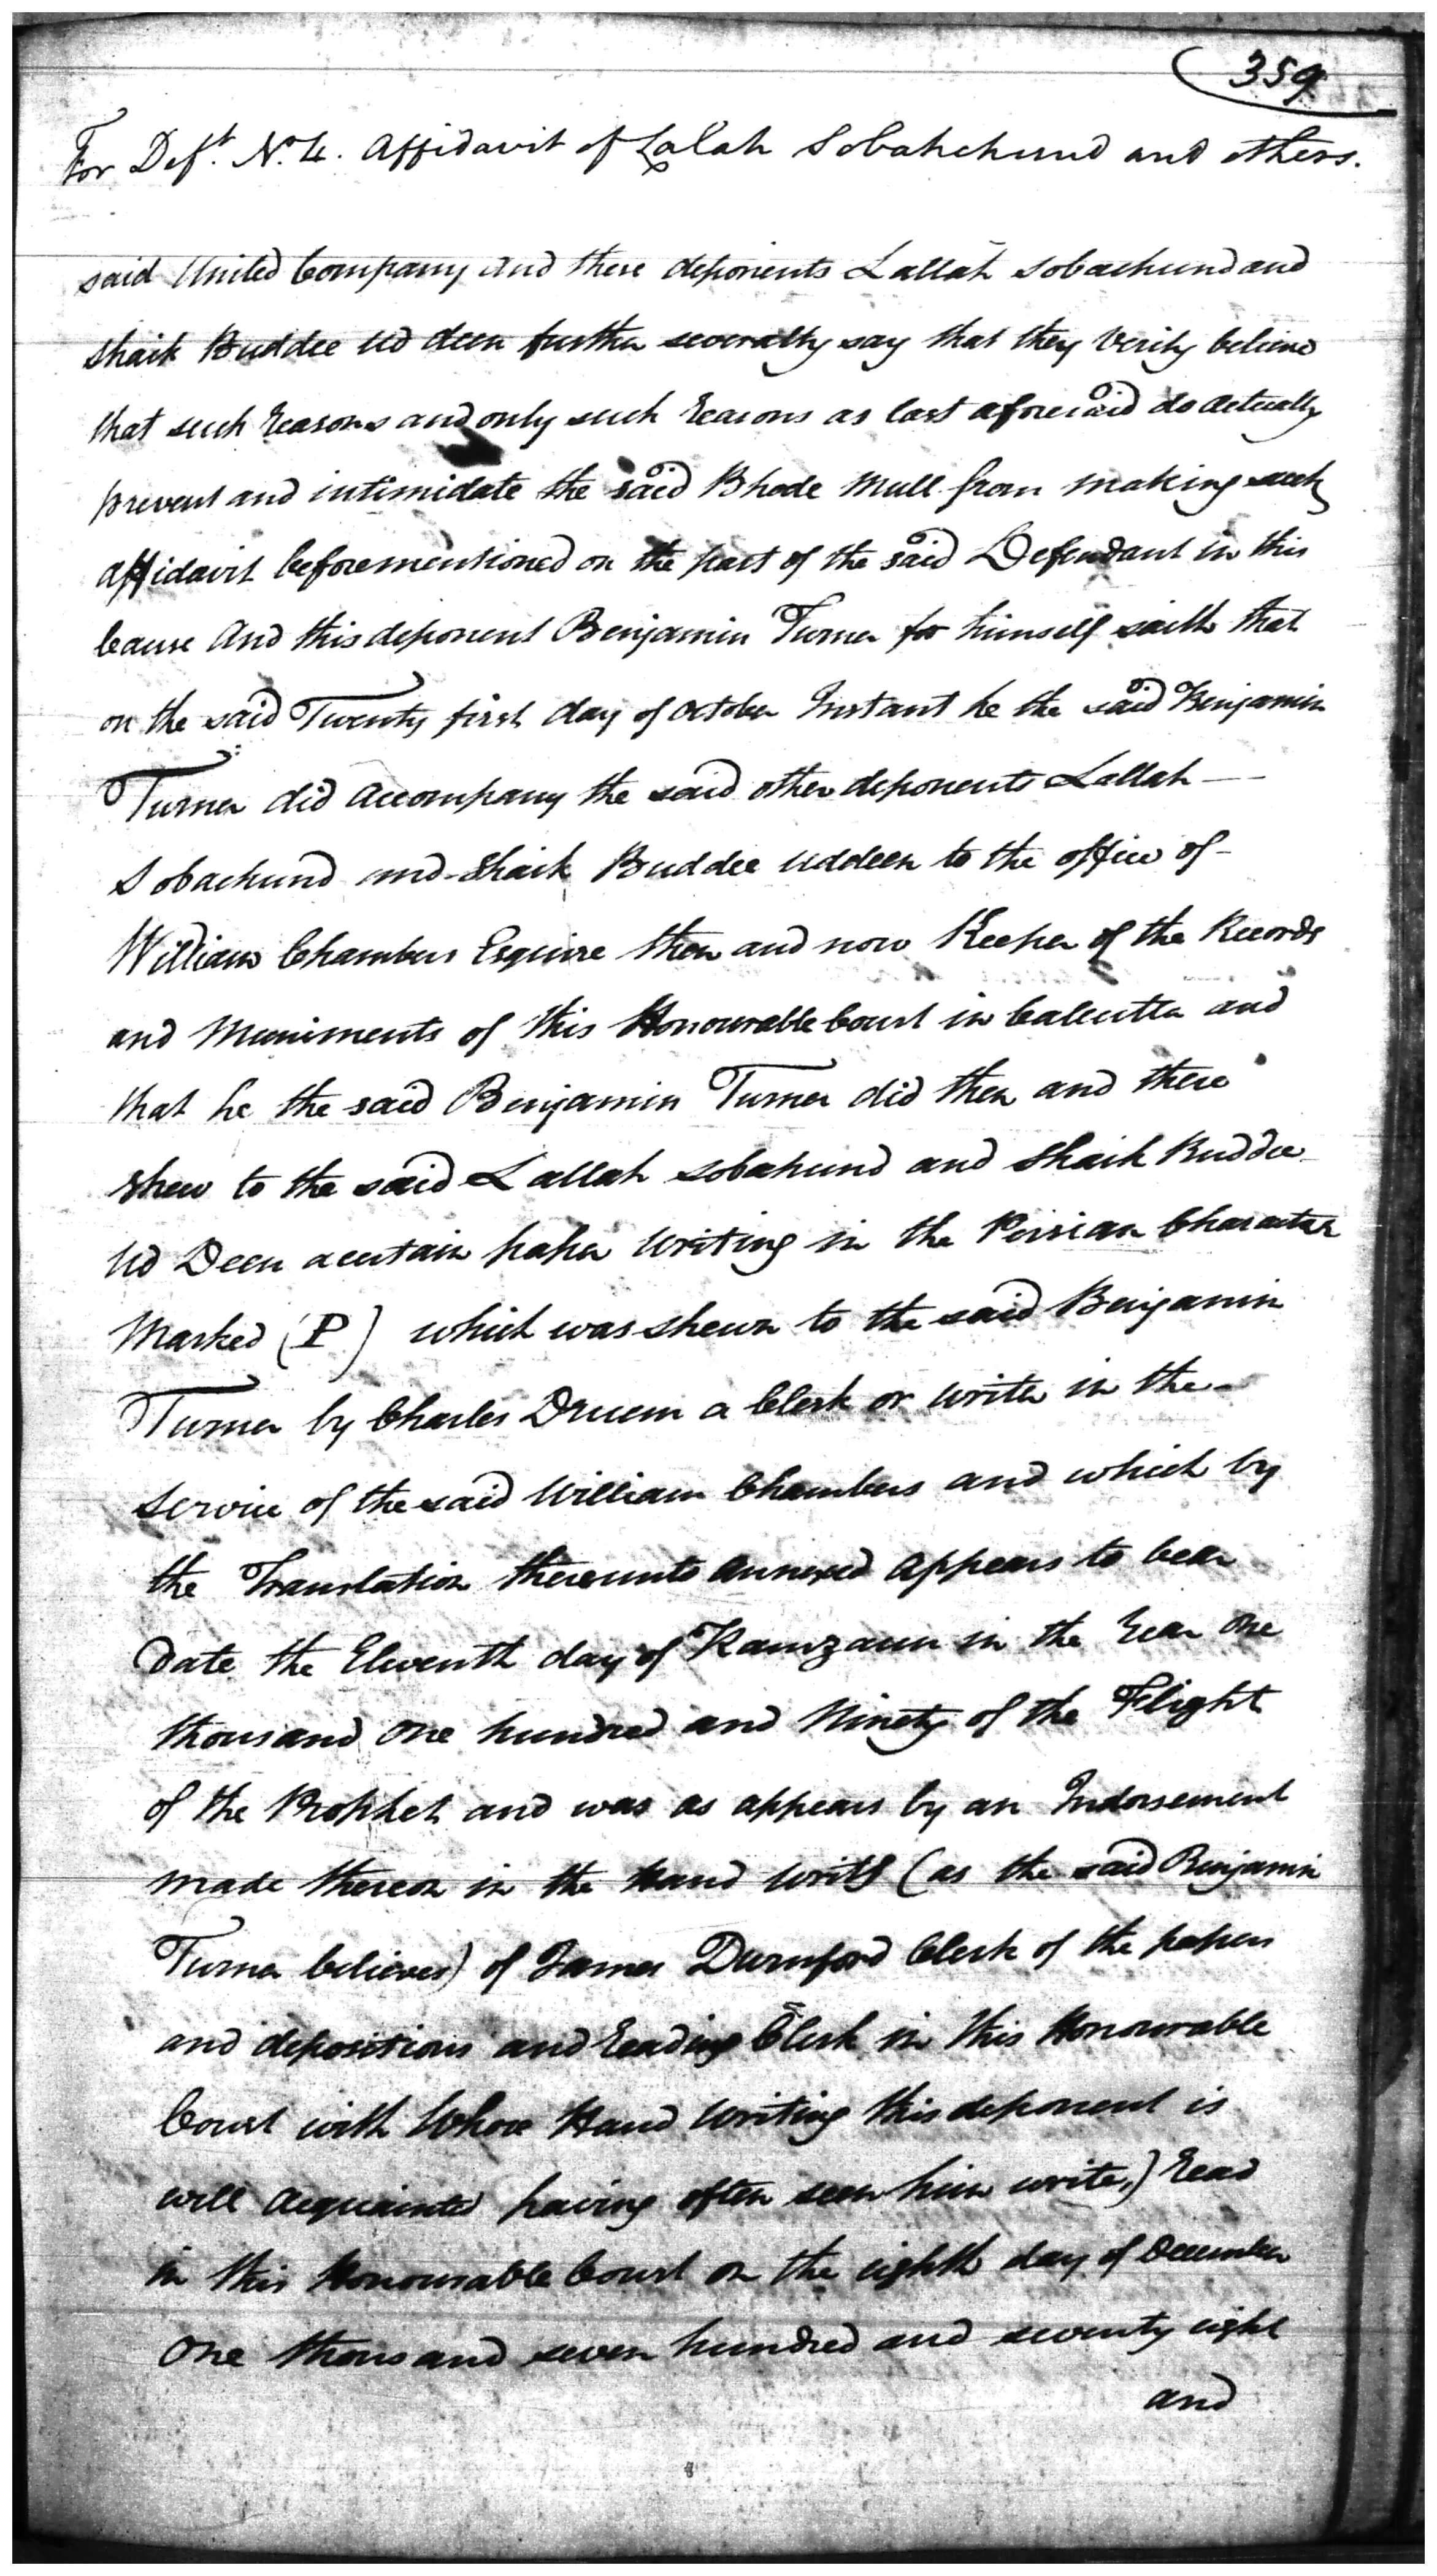 359
For Deft. No. 4. Affidavit of Lalah Sobahchund and others.
said United Company And these deponents Lallah Sobachund and
Shaik Buddee Ud deen further severally say that they Verily believe
that such Reasons and only such Reasons as last aforesaid do actually
prevent and intimidate the said Bhode Mull from making such
affidavit beforementioned on the part of the said Defendant in this
Cause And this deponent Benjamin Turner for himself saith that
on the said Twenty first day of October Instant he the said Benjamin
Turner did accompany the said other deponents Lallah
Sobachund and Shaik Buddee Uddeen to the office of
William Chambers Esquire then and now Keeper of the Records
and Muniments of this Honourable Court in Calcutta and
that he the said Benjamin Turner did then and there
shew to the said Lallah Sobahund and Shaik Buddee
Ud Deen a certain paper Writing in the Persian Character
Marked (P) which was shewn to the said Benjamin
Turner by Charles Druem a Clerk or writer in the
Service of the said William Chambers and which by
the Translation thereunto annexed appears to bear
Date the Eleventh day of Ramzaun in the Year One
thousand One hundred and Ninety of the Flight
of the Prophet and was as appears by an Indorsement
made thereon in the Hand Writg (as the said Benjamin
Turner believes) of James Durnford Clerk of the papers
and depositions and Reading Clerk in this Honourable
Court with Whose Hand Writing this deponent is
well acquainted having often seen him write,) Read
in this Honourable Court on the eighth day of December
One thousand seven hundred and seventy eight
and